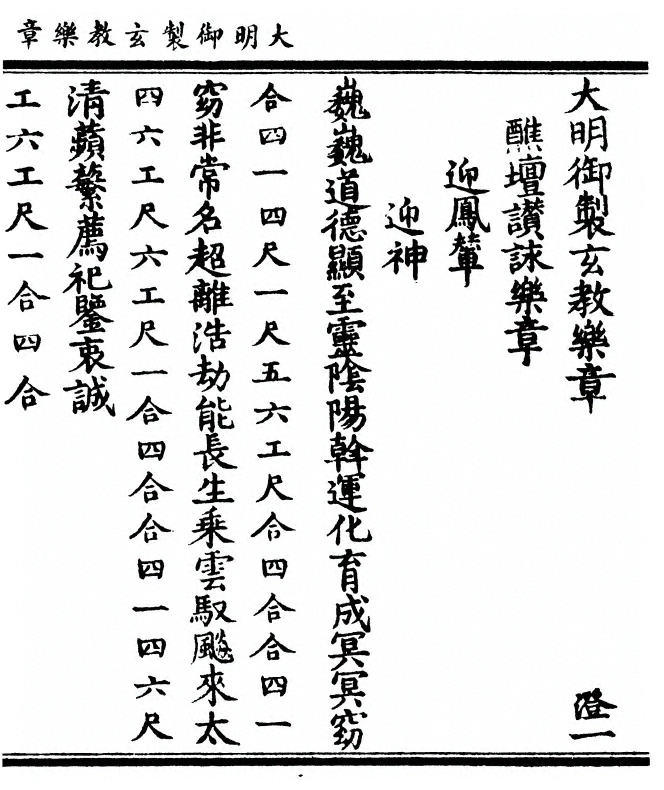 大明御製玄教樂章
大明御製玄教樂章 澄一
醮壇讚詠樂章
迎鳳輦
迎神
巍巍道德顯至靈陰陽斡運化育成冥冥窈
合四一四尺一尺五六工尺合四合合四一
窈非常名超離浩劫能長生乘雲馭飈來太
四六工尺六工尺一合四合合四一四六尺
清蘋蘩薦祀鑒衷誠
工六工尺一合四合